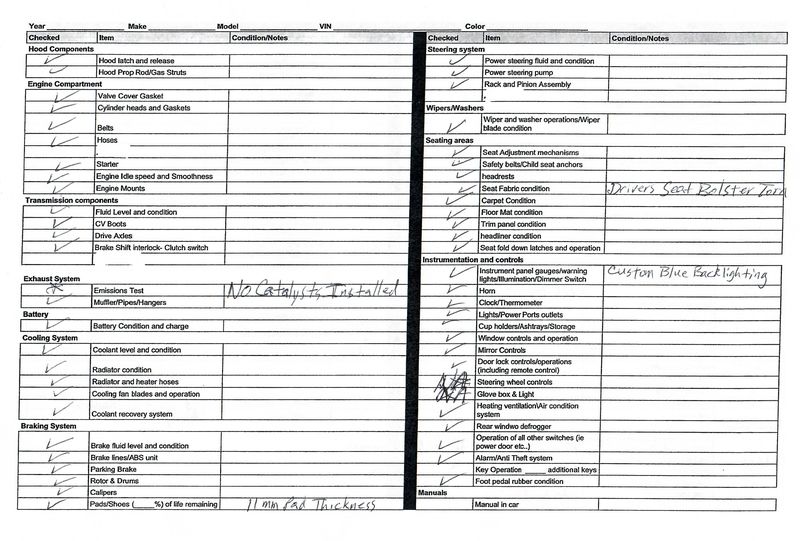 Year Make Model VIN Color
Checked Item Condition/Notes
Hood Components
✓ Hood latch and release
✓ Hood Prop Rod/Gas Struts
Engine Compartment
✓ Valve Cover Gasket
✓ Cylinder heads and Gaskets
✓ Belts
✓ Hoses
✓ Starter
✓ Engine Idle speed and Smoothness
✓ Engine Mounts
Transmission components
✓ Fluid Level and condition
✓ CV Boots
✓ Drive Axles
✓ Brake Shift interlock- Clutch switch
Exhaust System
* Emissions Test No Catalysts Installed
✓ Muffler/Pipes/Hangers
Battery
✓ Battery Condition and charge
Cooling System
✓ Coolant level and condition
✓ Radiator condition
✓ Radiator and heater hoses
✓ Cooling fan blades and operation
✓ Coolant recovery system
Braking System
✓ Brake fluid level and condition
✓ Brake lines/ABS unit
✓ Parking Brake
✓ Rotor & Drums
✓ Calipers
✓ Pads/Shoes (____%) of life remaining 11mm Pad Thickness
Checked Item Condition/Notes
Steering system
✓ Power steering fluid and condition
✓ Power steering pump
✓ Rack and Pinion Assembly
Wipers/Washers
✓ Wiper and washer operations/Wiper
blade condition
Seating areas
✓ Seat Adjustment mechanisms
✓ Safety belts/Child seat anchors
✓ headrests
✓ Seat Fabric condition Drivers Seat Bolster Torn
✓ Carpet Condition
✓ Floor Mat condition
✓ Trim panel condition
✓ headliner condition
✓ Seat fold down latches and operation
Instrumentation and controls
✓ Instrument panel gauges/warning Custom Blue Backlighting
lights/Illumination/Dimmer Switch
✓ Horn
✓ Clock/Thermometer
✓ Lights/Power Ports outlets
✓ Cup holders/Ashtrays/Storage
✓ Window controls and operation
✓ Mirror Controls
✓ Door lock controls/operations
(including remote control)
N/A Steering wheel controls
N/A Glove box & Light
✓ Heating ventilation\Air condition
system
✓ Rear windwo defrogger
✓ Operation of all other switches (ie
power door etc..)
✓ Alarm/Anti Theft system
Key Operation _____ additional keys
✓ Foot pedal rubber condition
Manuals
Manual in car